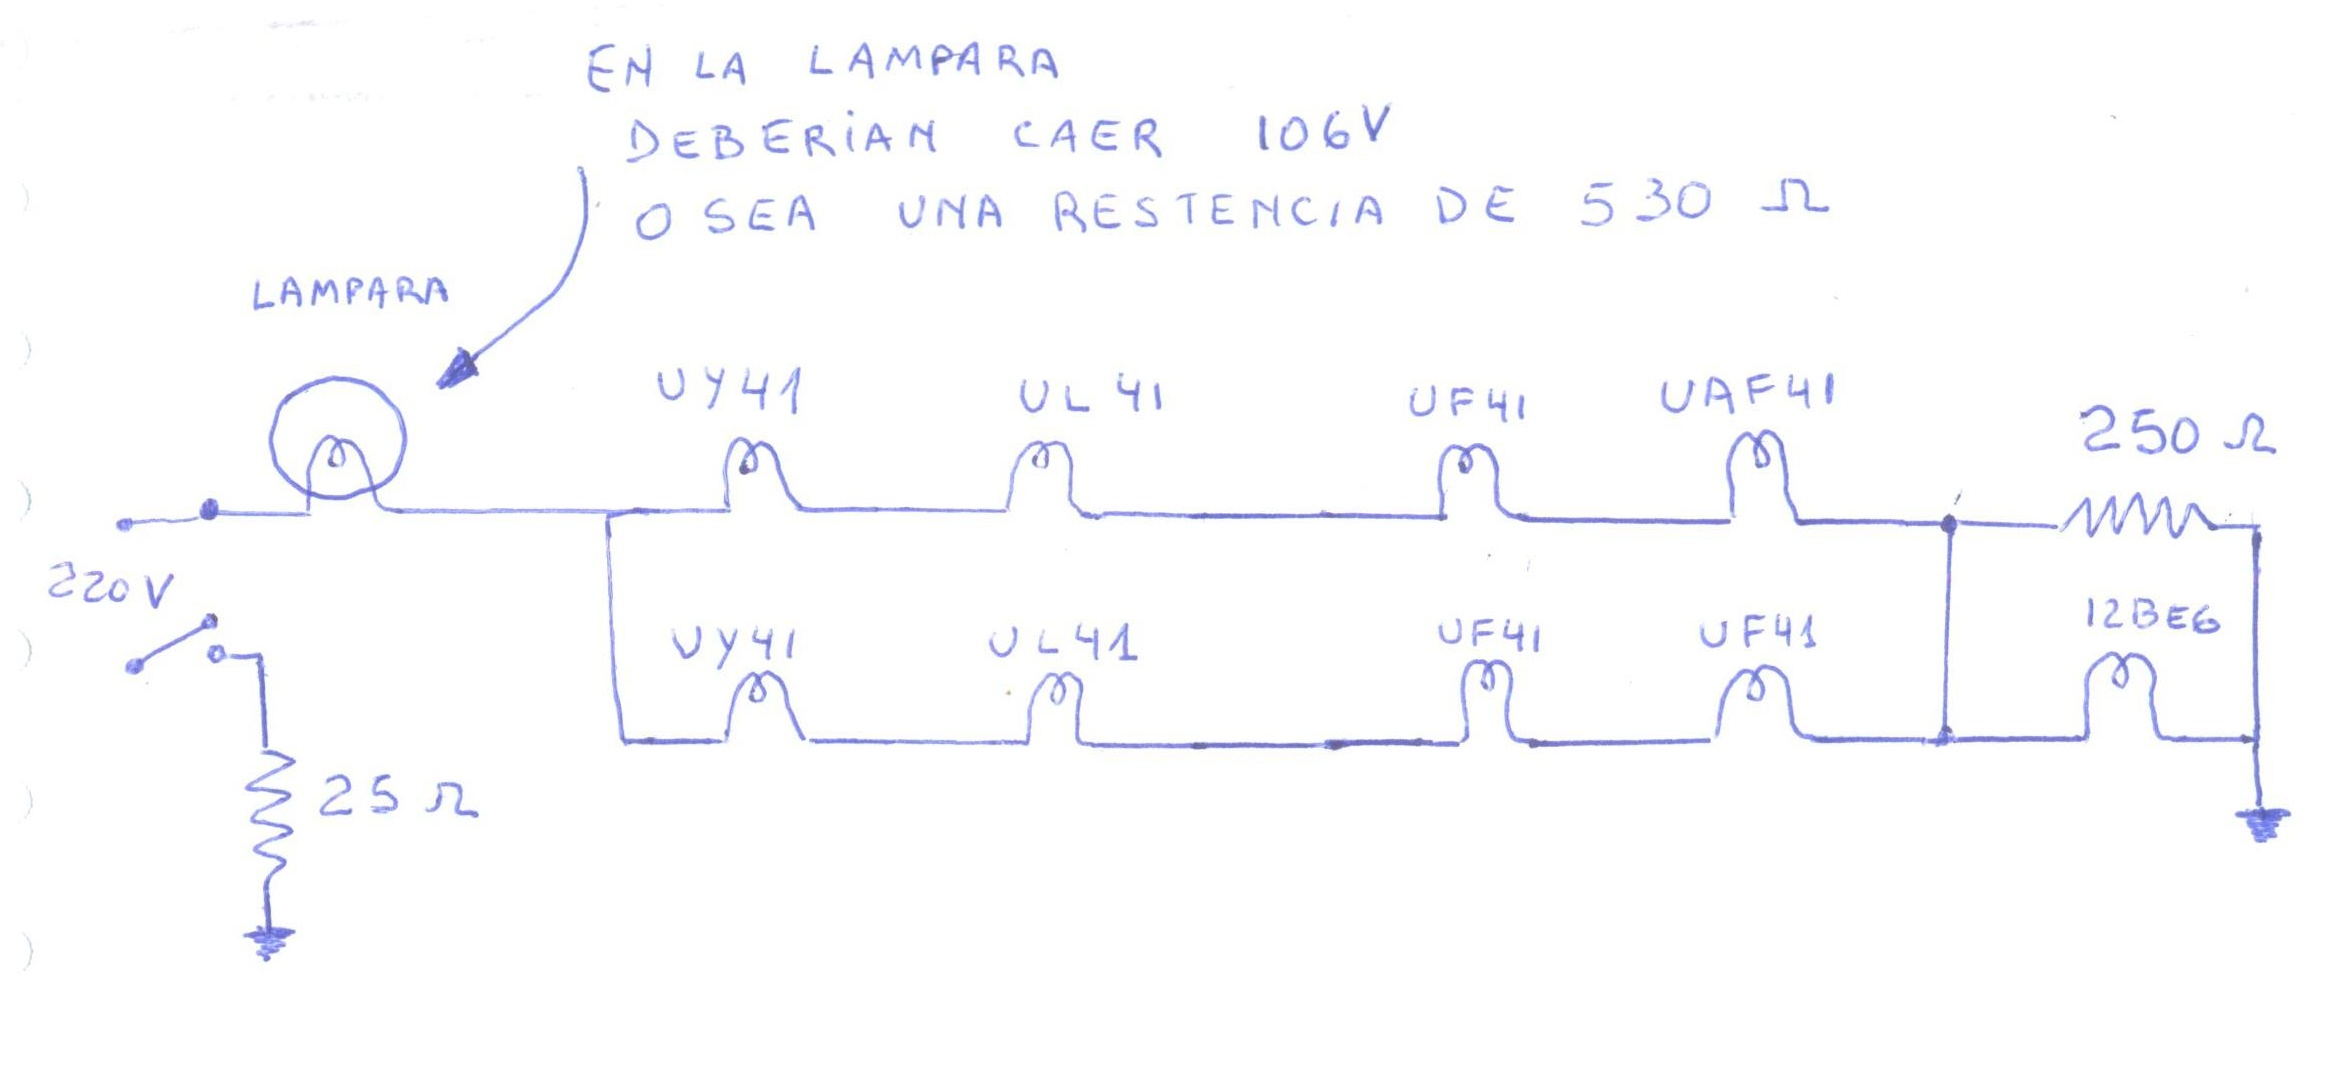 EN LA LAMPARA
DEBERIAN CAER 106V
O SEA UNA RESTENCIA DE 530 Ω
LAMPARA
UY41 UL41 UF41 UAF41 250 Ω
220V
UY41 UL41 UF41 UF41 12BE6
25 Ω